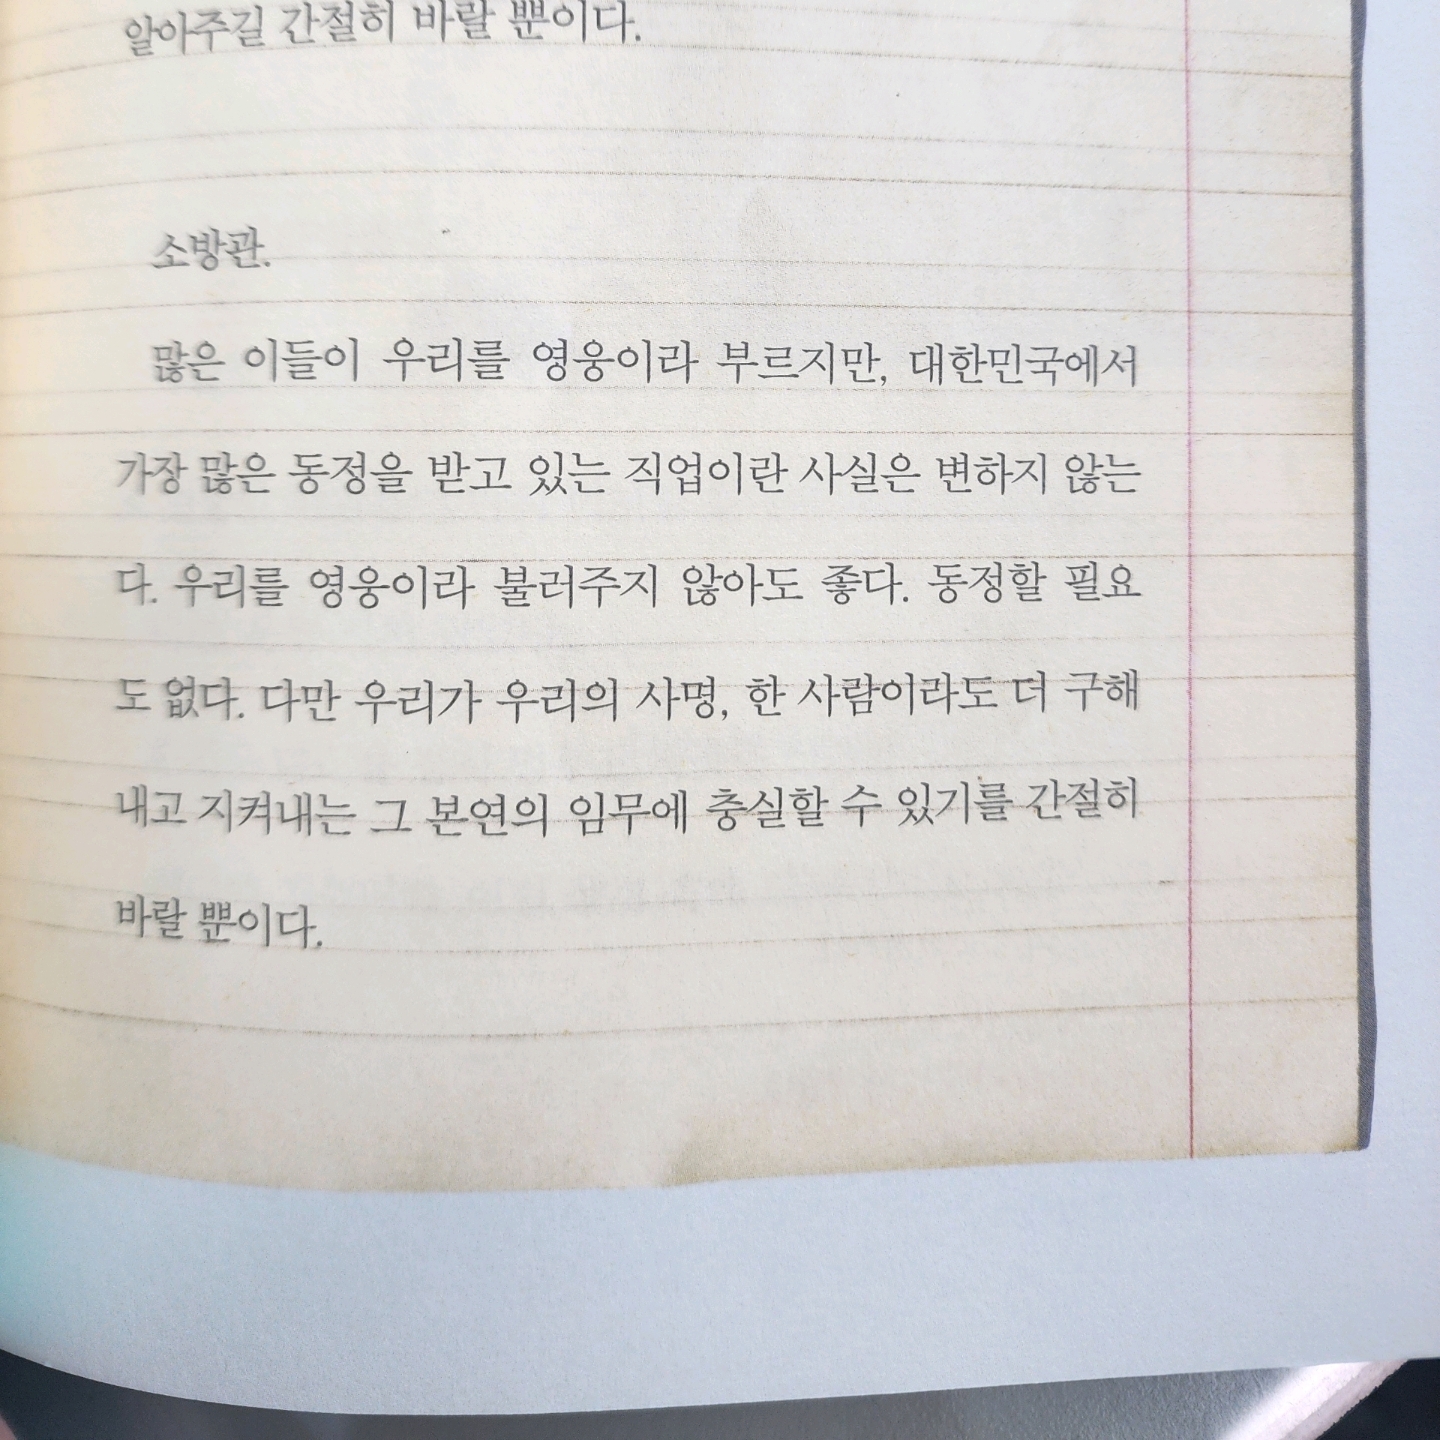 알아주길 간절히 바랄 뿐이다.
소방관.
많은 이들이 우리를 영웅이라 부르지만, 대한민국에서
가장 많은 동정을 받고 있는 직업이란 사실은 변하지 않는
다. 우리를 영웅이라 불러주지 않아도 좋다. 동정할 필요
도 없다. 다만 우리가 우리의 사명, 한 사람이라도 더 구해
내고 지켜내는 그 본연의 임무에 충실할 수 있기를 간절히
바랄 뿐이다.